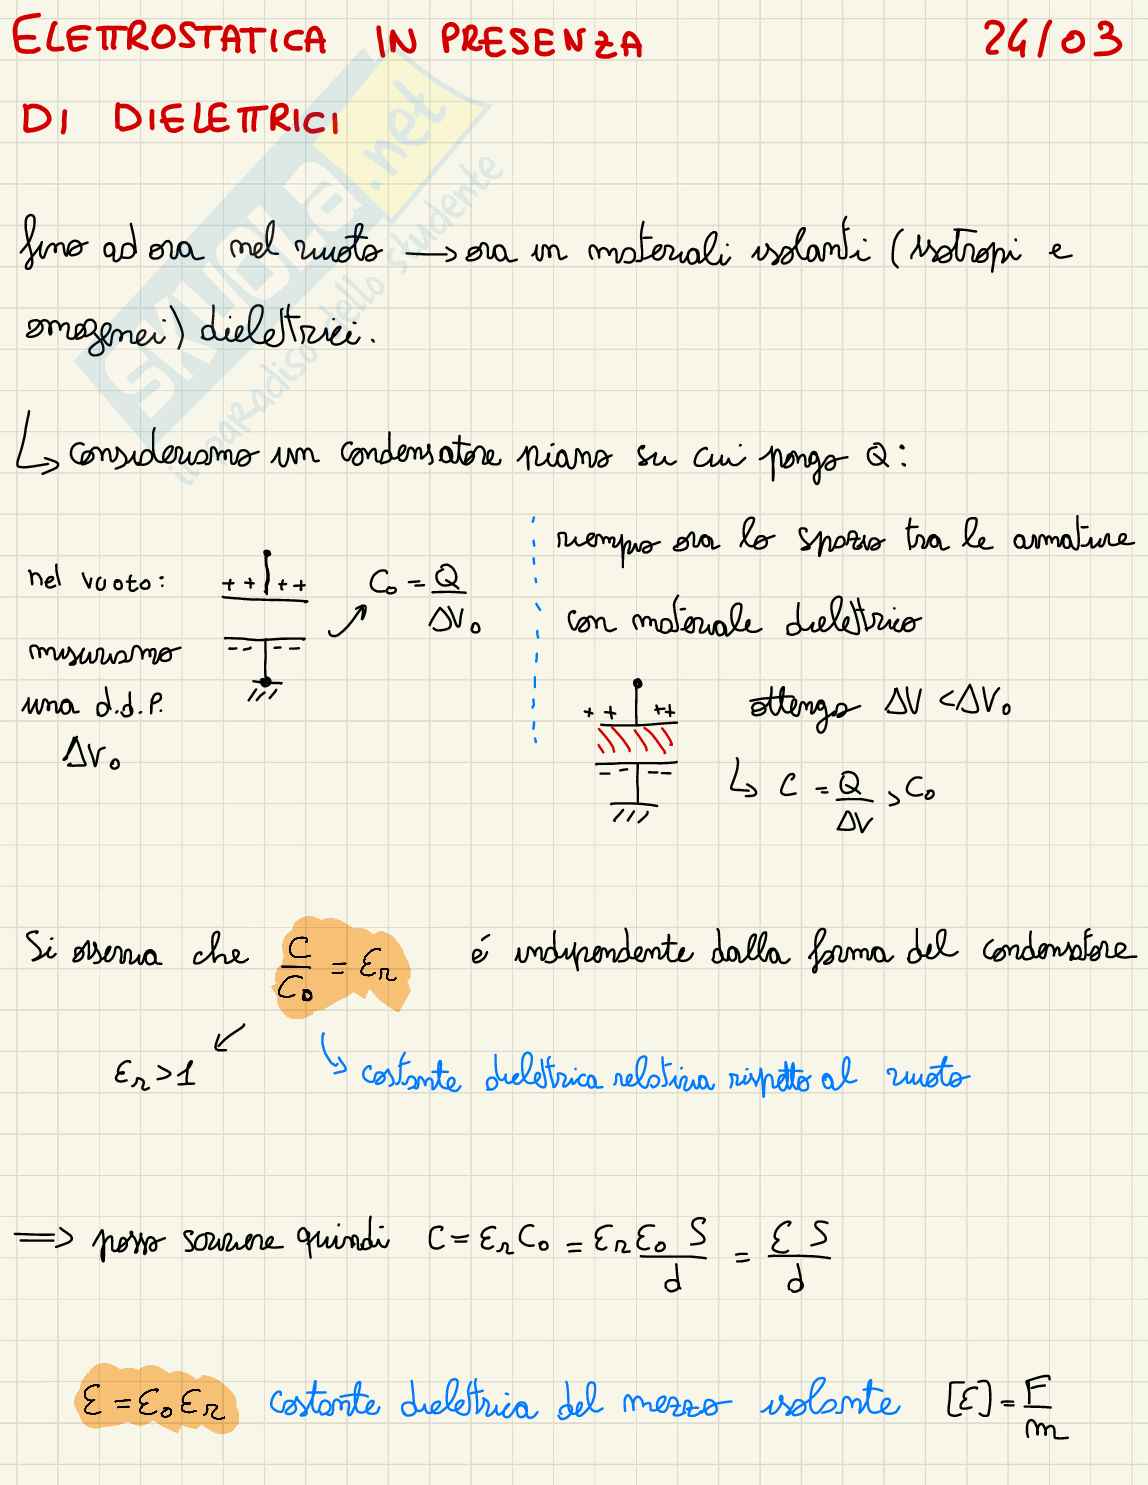 ELETTROSTATICA IN PRESENZA 24/03
DI DIELETTRICI
SKUOLA.net
il paradiso dello studente
fino ad ora nel vuoto → ora in materiali isolanti (isotropi e
omogenei) dielettrici.
↳ consideriamo un condensatore piano su cui pongo Q:
nel vuoto:
misuriamo
una d.d.P.
ΔV₀
+ + + +
- - - -
C₀ = Q/ΔV₀
riempio ora lo spazio tra le armature
con materiale dielettrico
+ + + +
- - - -
ottengo ΔV < ΔV₀
↳ C = Q/ΔV > C₀
Si osserva che C/C₀ = εr é indipendente dalla forma del condensatore
εr > 1
↳ costante dielettrica relativa rispetto al vuoto
⟹ posso scrivere quindi C = εr C₀ = εr ε₀ S/d = ε S/d
ε = ε₀ εr costante dielettrica del mezzo isolante [ε] = F/m